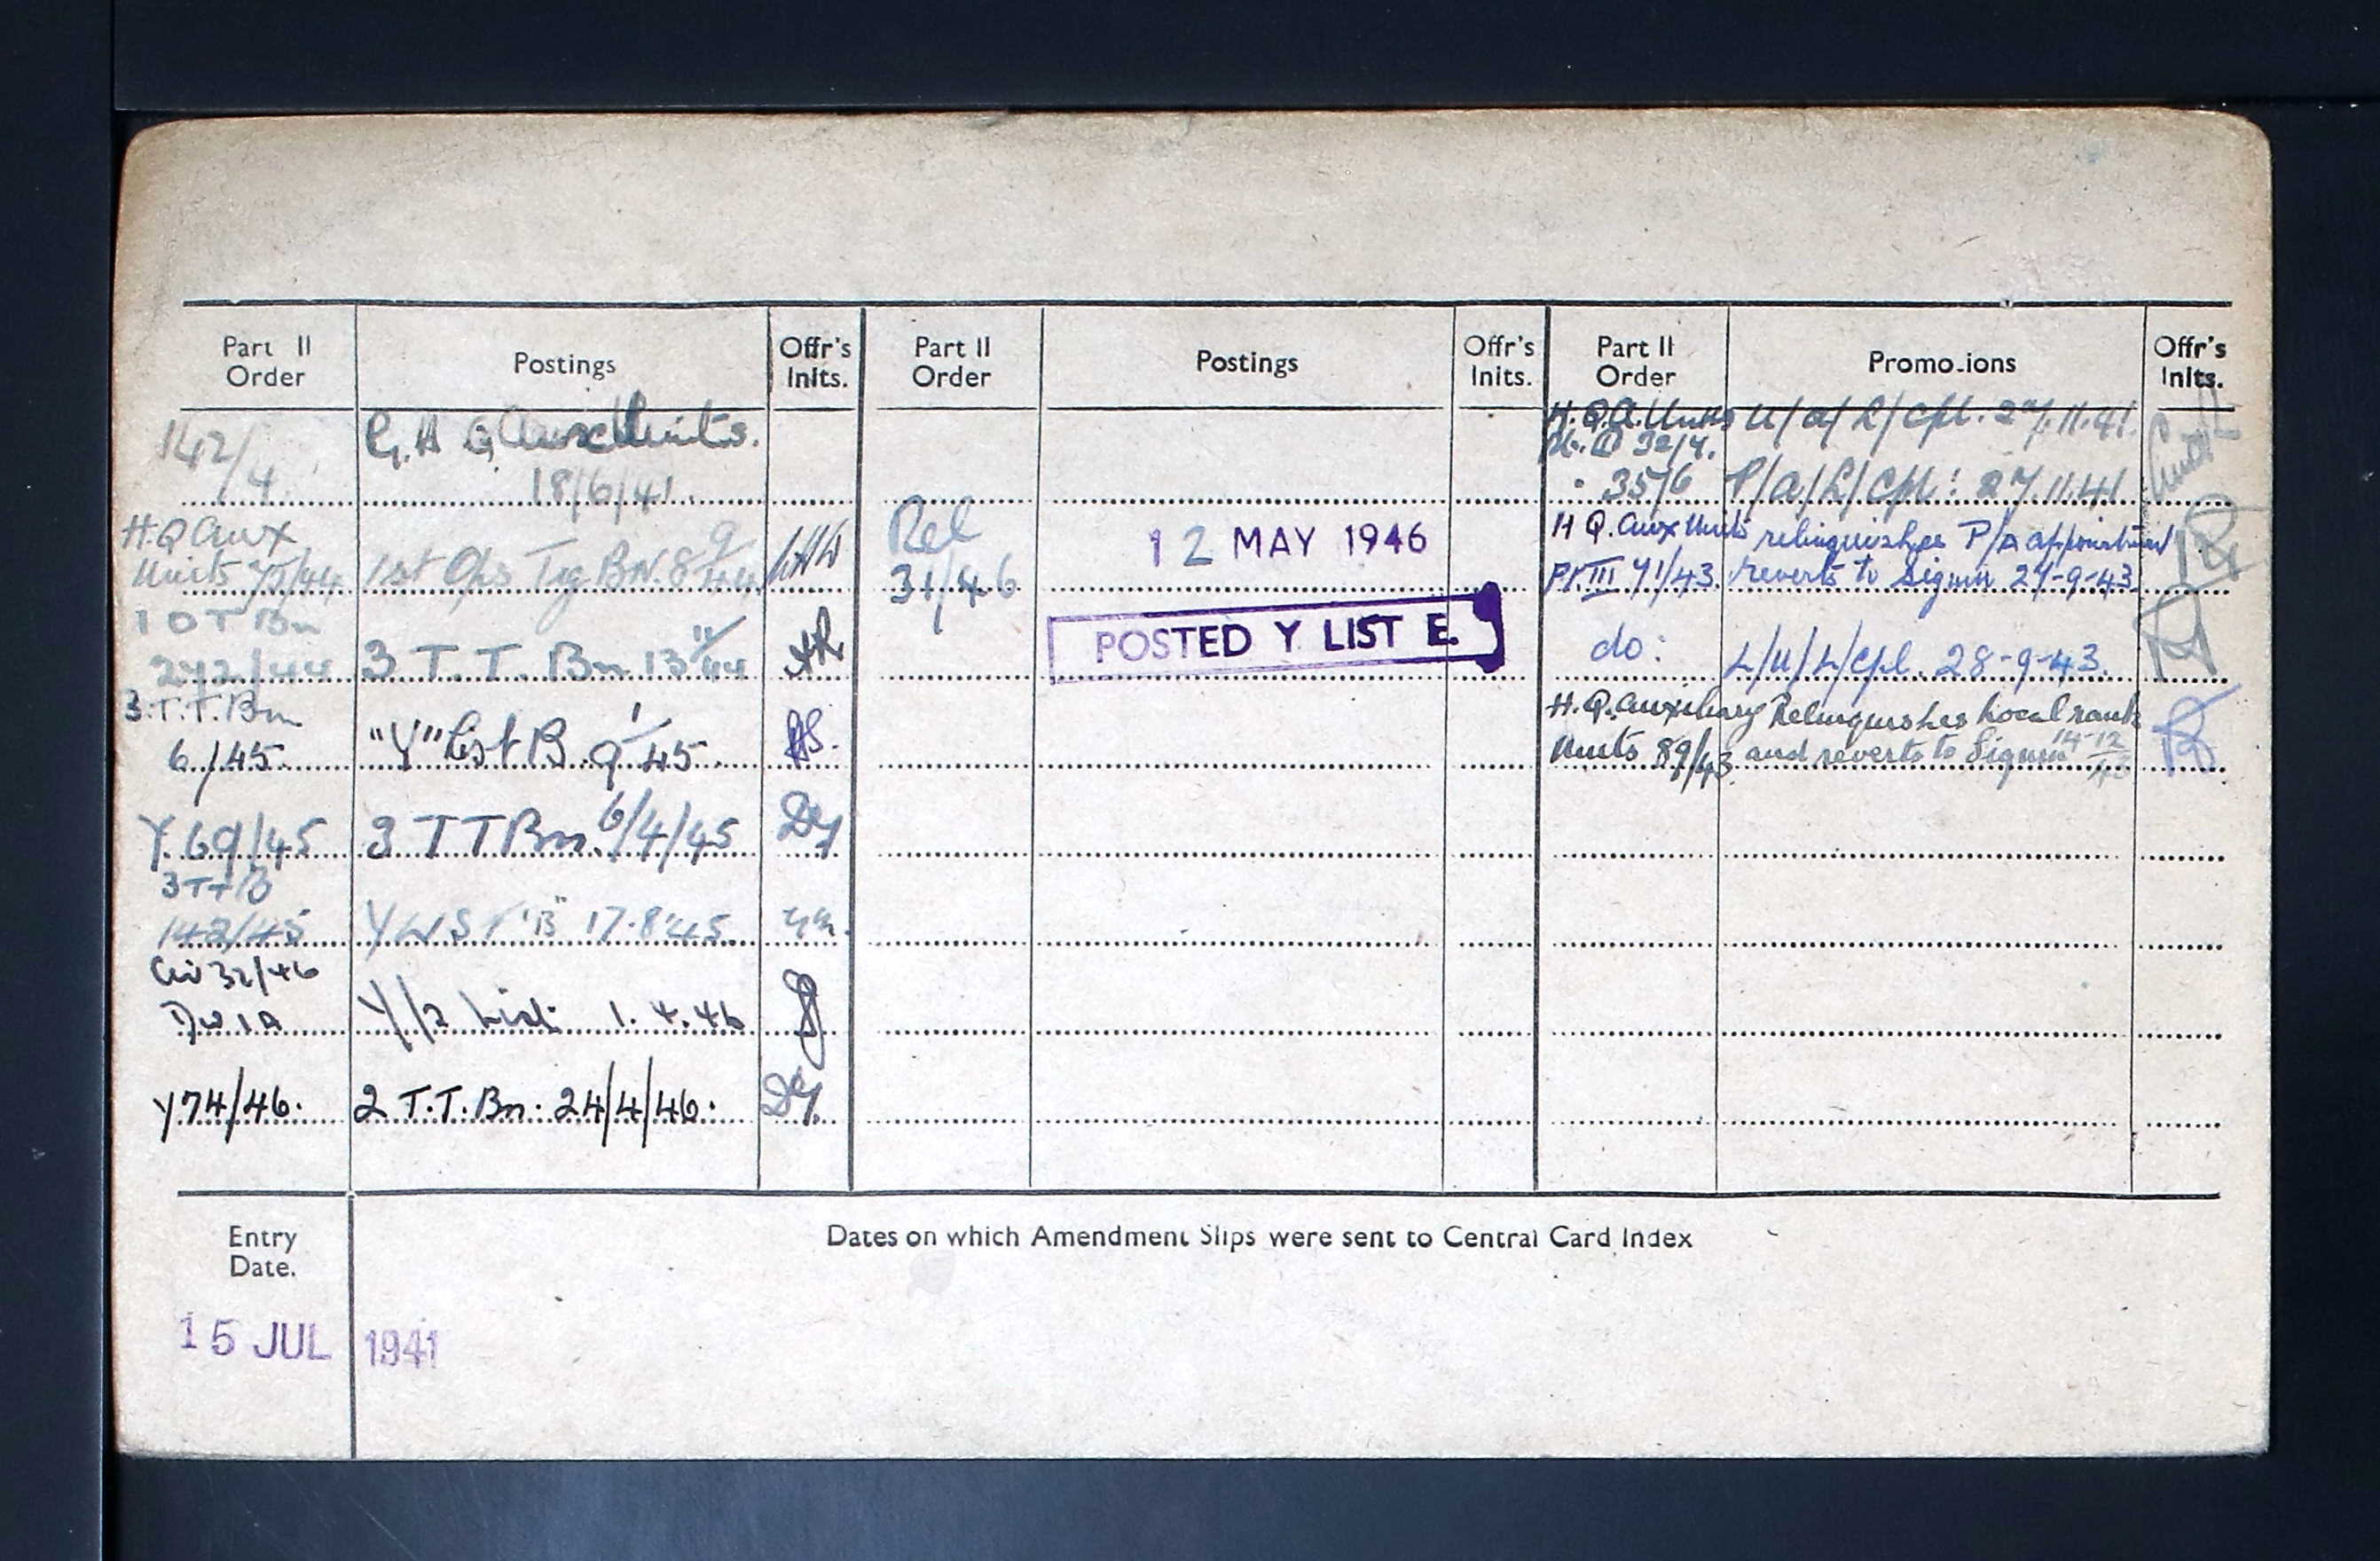 Part II Order
Postings
Offr's Inits.
Part II Order
Postings
Offr's Inits.
Part II Order
Promo ions
Offr's Inits.
142/4
G.H.Q Aux Units.
18/6/41
H.Q Aux
Units 75/44
1st Ops Tg. Bn. 8 9/44
1 O T Bn
272/44
3 T. T. Bn 13 11/44
3.T.T.Bn
6/45
"Y" List B. 9 1/45
Y.69/45
3 T T Bn. 6/4/45
DY
3 TT B
142/45
Y LIST "B" 17.8.45
32/46
Y/2 List 1.4.46
Y74/46.
2 T.T. Bn. 24/4/46.
DY.
Rel
31/46
12 MAY 1946
POSTED Y LIST E.
H.Q.A. Units
32/4.
U/a/L/Cpl. 27.11.41.
35/6
P/a/L/Cpl: 27.11.41
H Q. Aux Units
Pt. III 71/43.
relinquishes P/A appointment
reverts to Signmn 27-9-43.
do:
L/U/L/Cpl. 28-9-43.
H.Q. Auxiliary
Units 89/43
Relinquishes local rank
and reverts to Signmn 14-12/43
Entry Date.
Dates on which Amendment Slips were sent to Central Card Index
15 JUL 1941